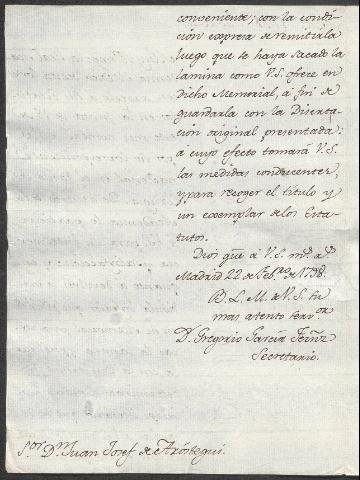 conveniente; con la condi-
ción expresa de remitirla
luego que se haya sacado la
lámina como V.S. ofrece en
dicho Memorial, á fin de
guardarla con la Diserta-
ción original presentada:
á cuyo efecto tomará V.S.
las medidas conducentes,
y para recoger el titulo y
un exemplar de los Esta-
tutos.
Dios gue. á V.S. ms. as.
Madrid 22 de Feb.ro de 1798.
B. L. M. de V.S. su
mas atento serv.or
D. Gregorio García Fernz.
Secretario.
S.or D.n Juan Josef de Aróstegui.